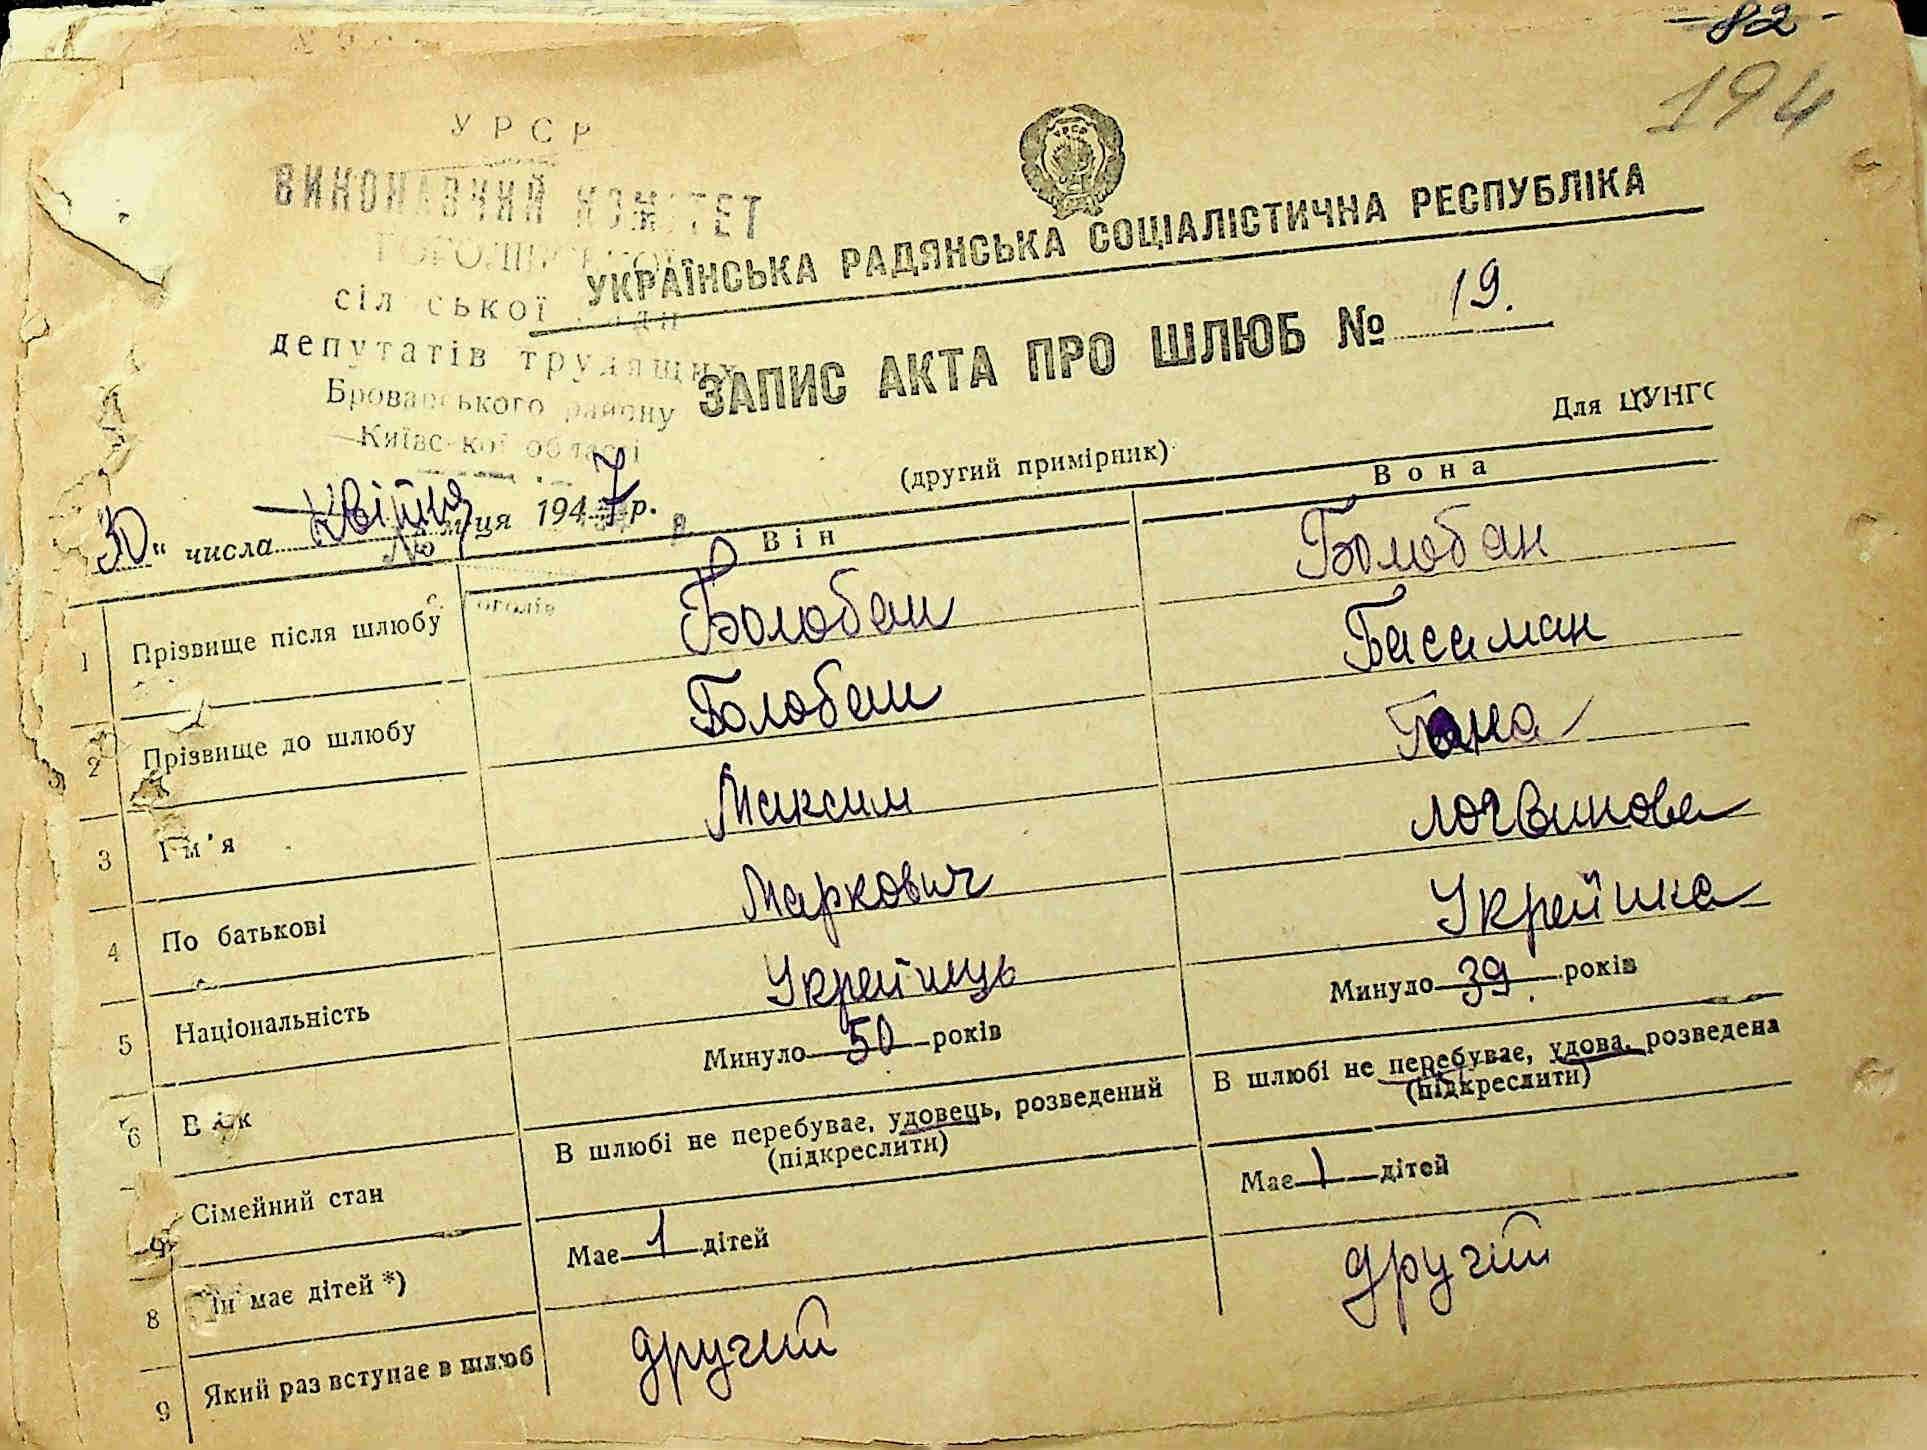 -82-
194
УРСР
ВИКОНАВЧИЙ КОМІТЕТ
сільської ради
депутатів трудящих
Броварського району
Київської області
УКРАЇНСЬКА РАДЯНСЬКА СОЦІАЛІСТИЧНА РЕСПУБЛІКА
ЗАПИС АКТА ПРО ШЛЮБ № 19.
Для ЦУНГС
(другий примірник)
30 " числа Квітня м-ця 1947 р.
Він
Вона
1 Прізвище після шлюбу Болобан Болобан
2 Прізвище до шлюбу Болобан Басаман
3 Ім'я Максим Гана
4 По батькові Маркович Логвинова
5 Національність Українець Українка
6 Вік Минуло 50 років Минуло 39 років
Сімейний стан В шлюбі не перебуває, удовець, розведений (підкреслити) В шлюбі не перебуває, удова, розведена (підкреслити)
8 має дітей *) Має 1 дітей Має 1 дітей
9 Який раз вступає в шлюб другий другий